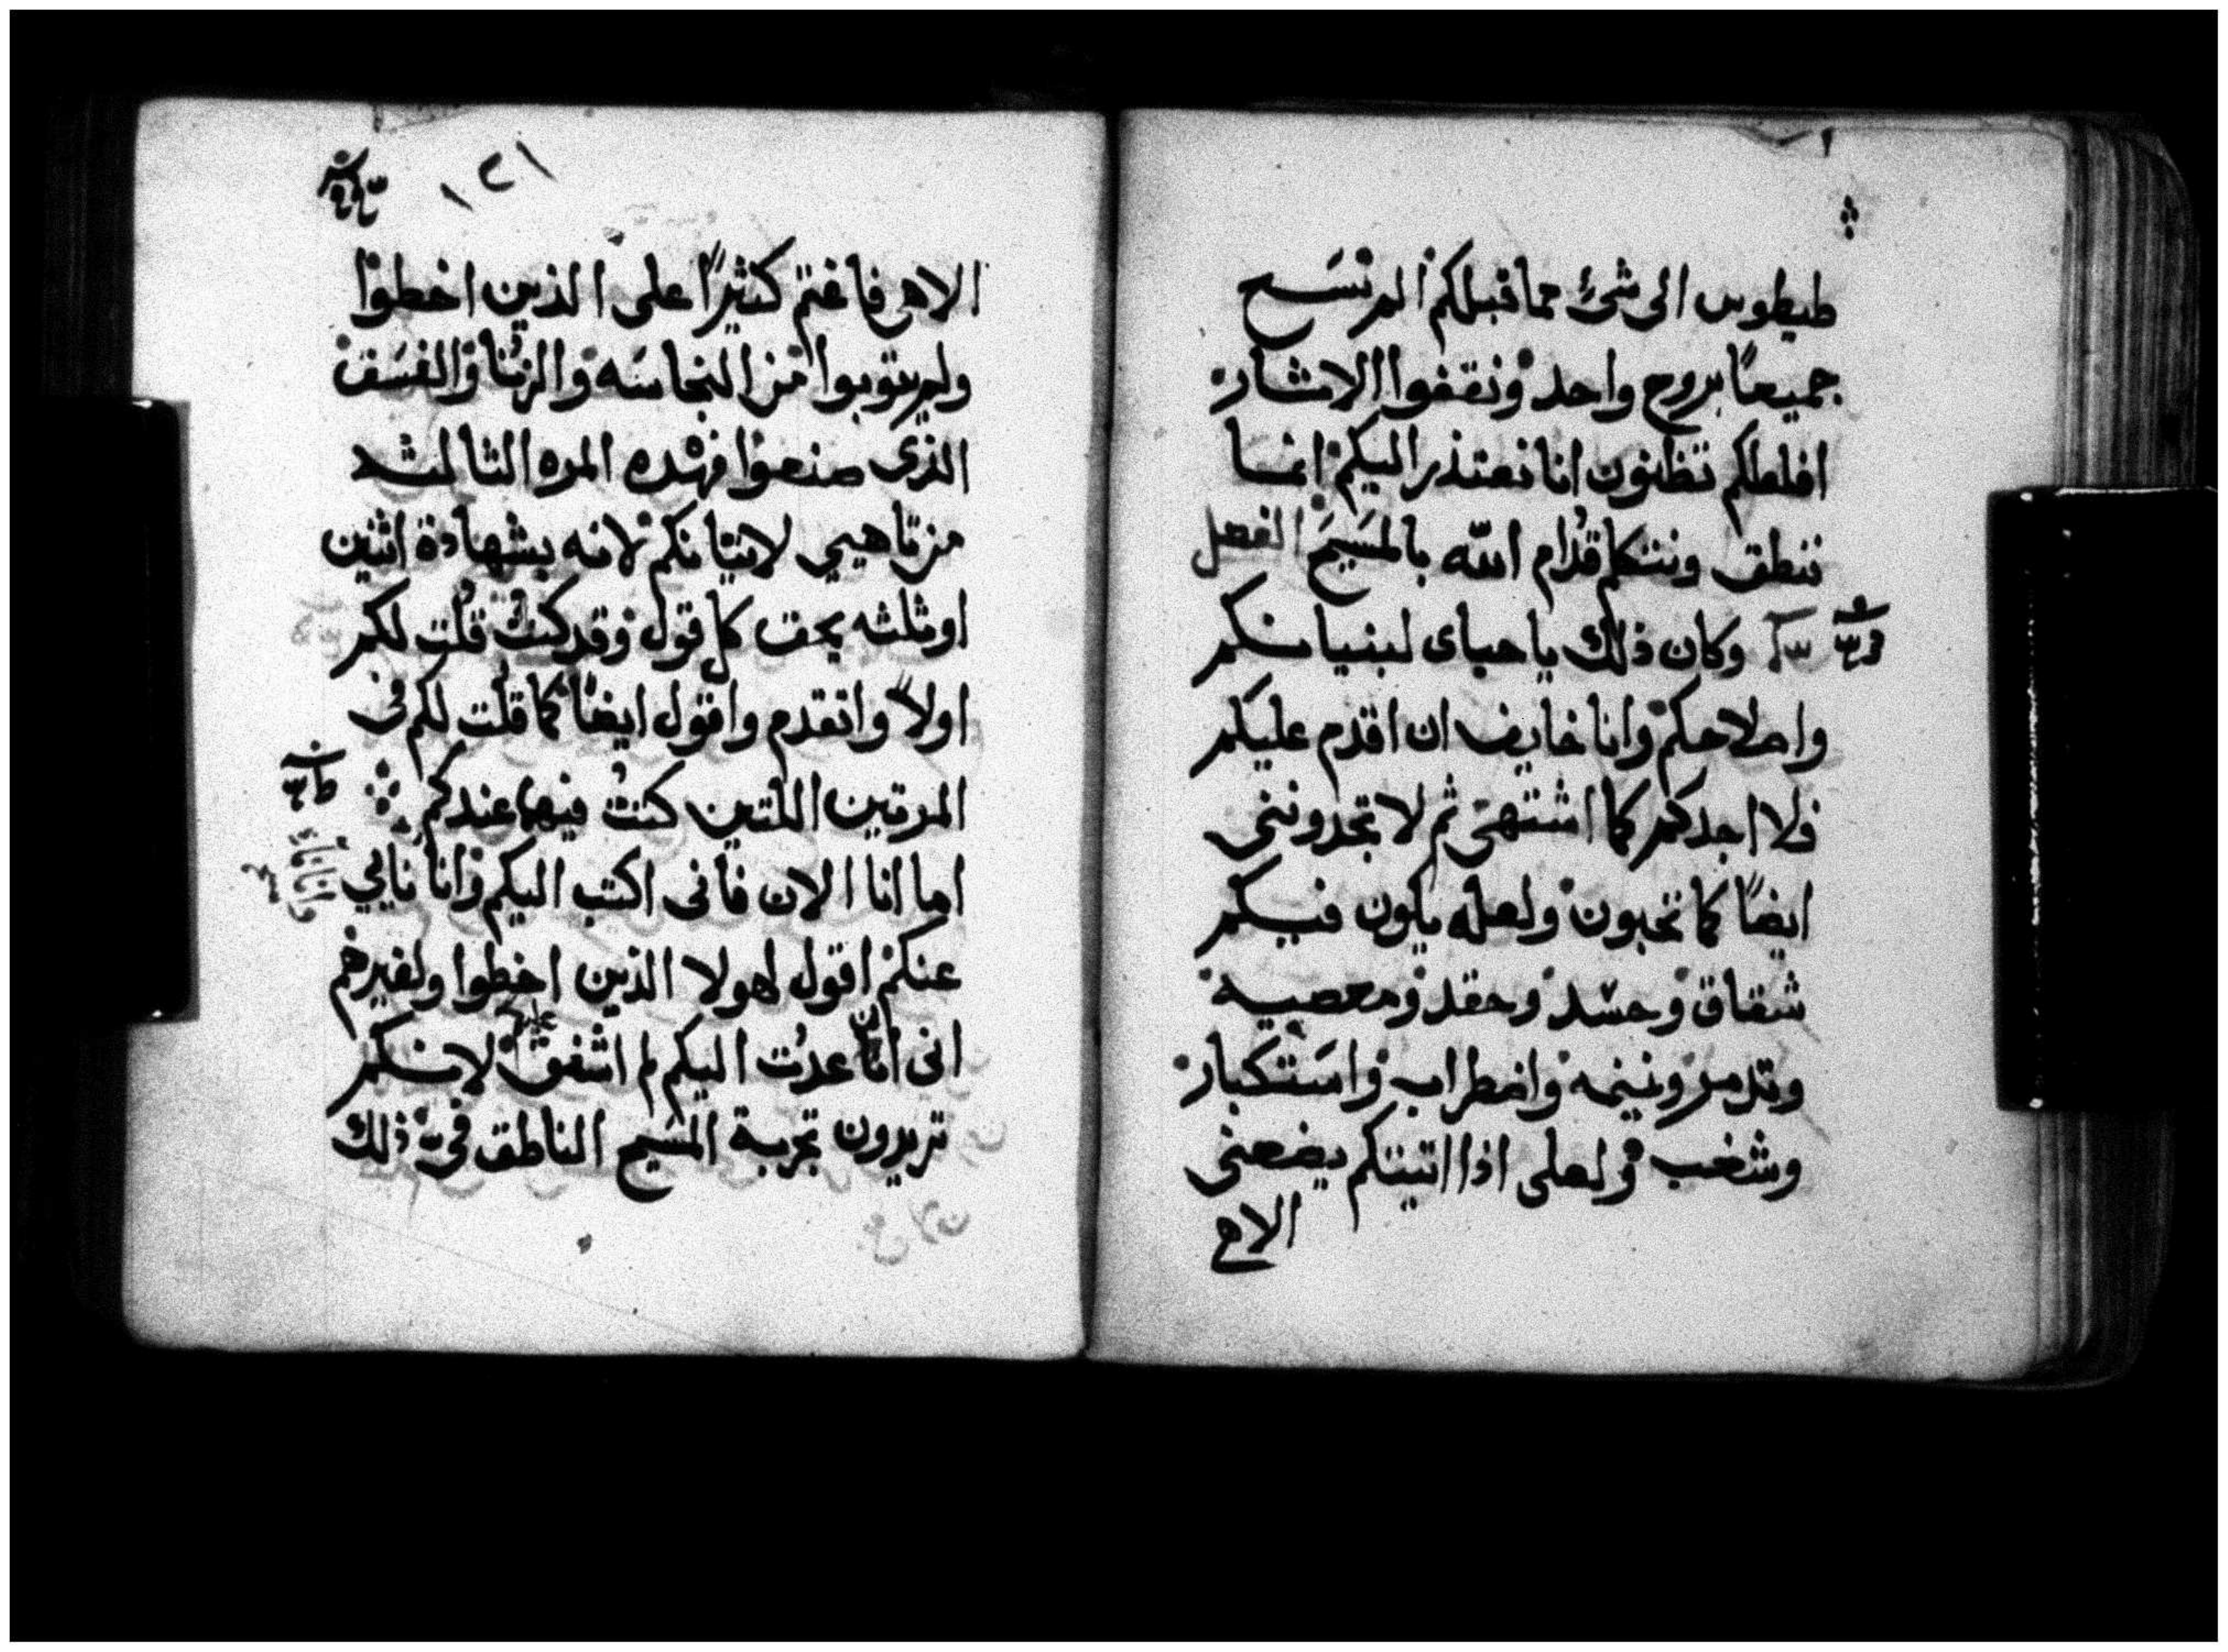 طيطوس الى شئ مما قبلكم المر نسع
جميعًا بروح واحد ونقفوا الاثار
افلعلكم تظنون انا نعتذر اليكم انما
ننطق ونتكلم قدام الله بالمسيح الفصل
وكان ذلك ياحباى لبنيانكم
واصلاحكم وانا خايف ان اقدم عليكم
فلا اجدكم كما اشتهى ثم لا تجدوننى
ايضًا كما تحبون ولعله يكون فيكم
شقاق وحسد وحقد ومعصية
وتدمر ونميمه واضطراب واستكبار
وشغب ولعلى اذا اتيتكم يضعنى
الاهى
١٢١
الاهى فاغتم كثيرًا على الذين اخطوا
ولم يتوبوا من النجاسه والزنا والفسق
الذى صنعوا فهذه المره الثالثه
من تاهيبي لاتيانكم لانه بشهادة اثنين
او ثلثه يحق كل قول وقد كنت قلت لكم
اولاً واتقدم واقول ايضًا كما قلت لكم فى
المرتين اللتين كنت فيهما عندكم
اما انا الان فانى اكتب اليكم وانا نايي
عنكم اقول لهولا الذين اخطوا ولغيرهم
انى ان انا عدت اليكم لم اشفق عليكم لانكم
تريدون تجربة المسيح الناطق فيّ ذلك